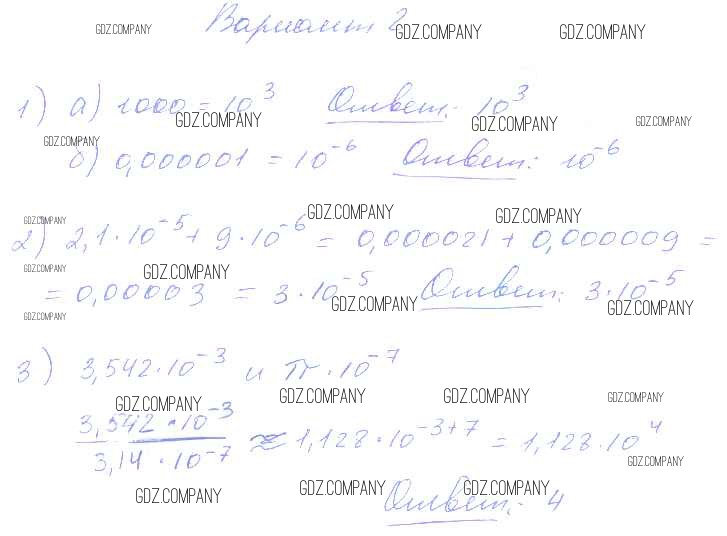 GDZ.COMPANY Вариант 2 GDZ.COMPANY GDZ.COMPANY
1) а) 1000 = 10³ Ответ: 10³
GDZ.COMPANY GDZ.COMPANY GDZ.COMPANY
GDZ.COMPANY
б) 0,000001 = 10⁻⁶ Ответ: 10⁻⁶
GDZ.COMPANY GDZ.COMPANY GDZ.COMPANY
2) 2,1·10⁻⁵ + 9·10⁻⁶ = 0,000021 + 0,000009 =
GDZ.COMPANY GDZ.COMPANY
= 0,00003 = 3·10⁻⁵ Ответ: 3·10⁻⁵
GDZ.COMPANY GDZ.COMPANY GDZ.COMPANY
3) 3,542·10⁻³ и π·10⁻⁷
GDZ.COMPANY GDZ.COMPANY GDZ.COMPANY GDZ.COMPANY
3,542·10⁻³ / 3,14·10⁻⁷ ≈ 1,128·10⁻³⁺⁷ = 1,128·10⁴
GDZ.COMPANY
GDZ.COMPANY GDZ.COMPANY GDZ.COMPANY
Ответ: 4